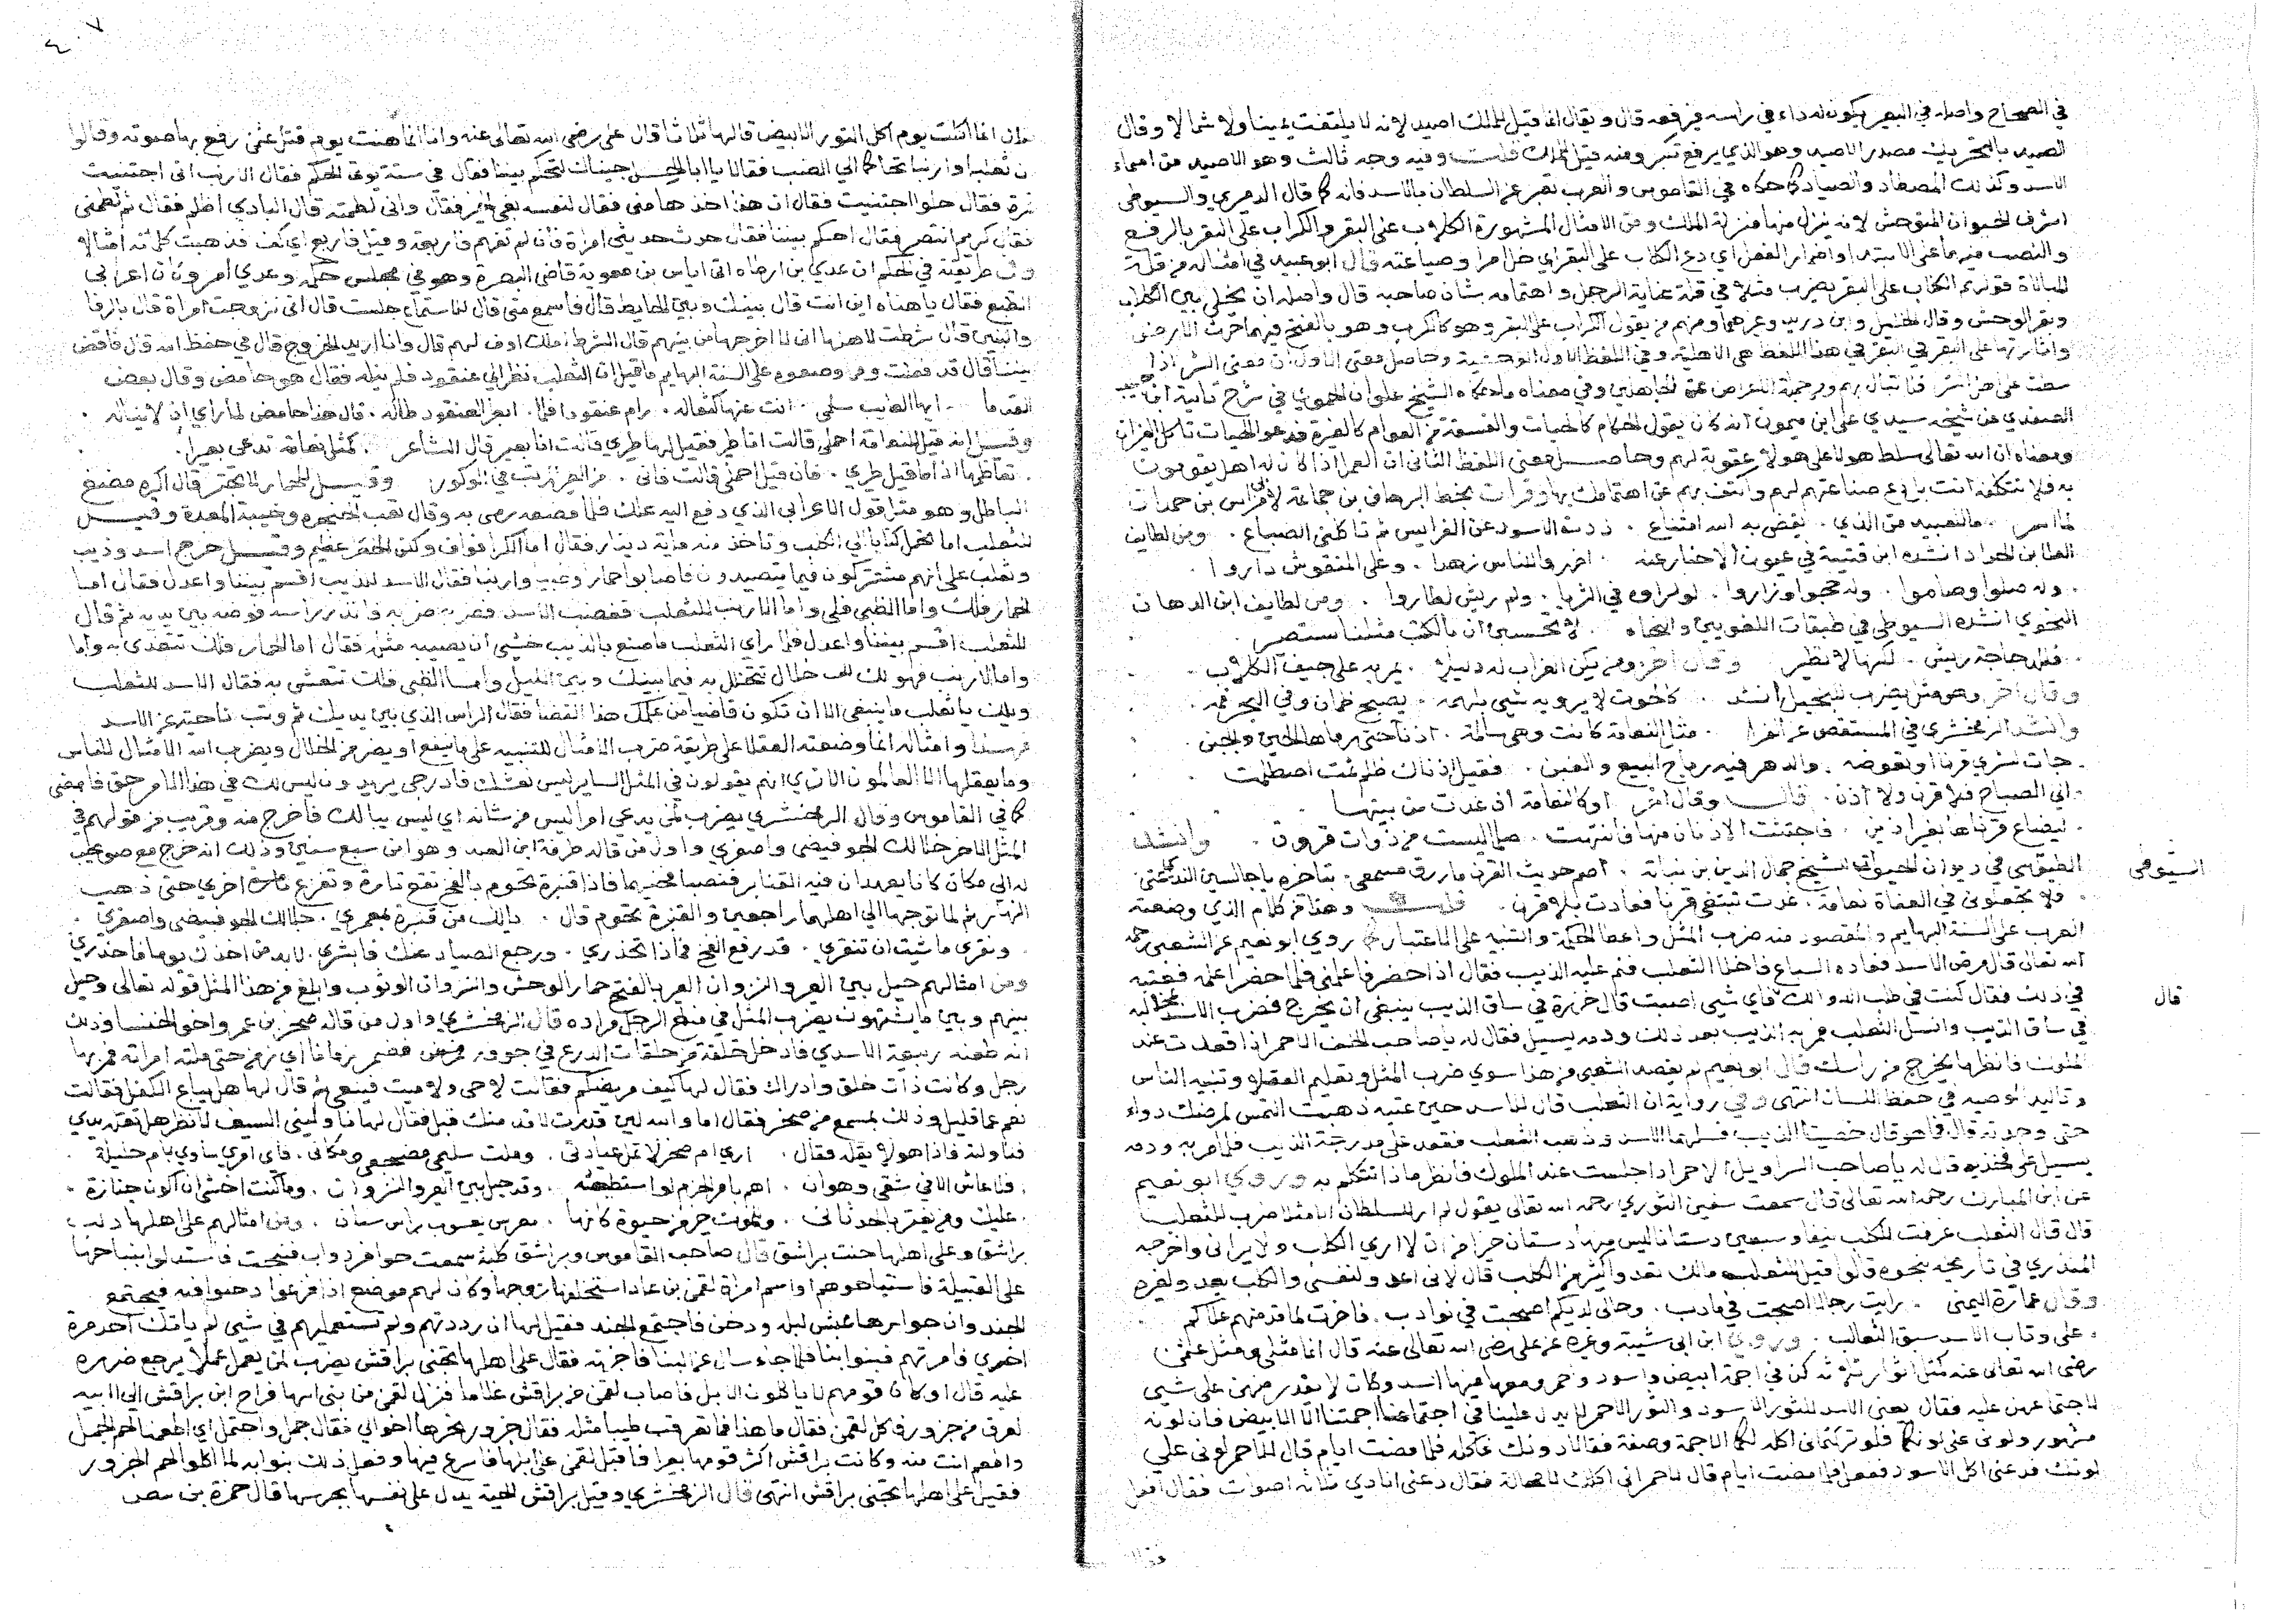 في الصحاح واصله في البعير يكون له داء في راسه فيرفعه قال ويقال انما قيل للملك اصيد لانه لا يلتفت يمينا ولا شمالا وقال
الصيد بالتحريك مصدر الاصيد وهو الذي يرفع تكبر ومنه قيل للملك قلت وفيه وجه ثالث وهو الاصيد من اسماء
الاسد وكذلك المصطاد والصياد كما حكاه في القاموس والعرب تعبر عن السلطان بالاسد فانه كما قال الدميري والسيوطي
اشرف الحيوان المتوحش لانه ينزل منها منزلة الملك ومن الامثال المشهورة الكلاب على البقر والكراب على البقر بالرفع
والنصب فيهما على الابتدا واضمار الفعل اي دع الكلاب على البقر اي خل امرا وصياعته قال ابو عبيد في امثاله من قلة
المبالاة قولهم الكلاب على البقر يضرب مثلا في قلة عناية الرجل واهتمامه بشان صاحبه قال واصله ان يخلى بين الكلاب
وبقر الوحش وقال الخليل وابن دريد وغيرهما ومنهم من يقول الكراب على البقر وهو كالكرب وهو بالفتح فيهما حرث الارض
واثارتها على البقر في البقر في هذا اللفظ هي الاهلية وفي اللفظ الاول الوحشية وحاصل معنى الاول ان معنى الشر اذا
سلط على هذا الشر فلا تبال بهم ومن جملة التعرض عن الجاهلين وفي معناه ما حكاه الشيخ علوان الحموي في شرح تايية ابن حبيب
الصفدي عن شيخه سيدي علي ابن ميمون انه كان يقول الحكام كالحيات والفسقة من العوام كالفيرة فدعوا الحيات تاكل الفيران
ومعناه ان الله تعالى سلط هولا على هولا عقوبة لهم وحاصل معنى اللفظ الثاني ان العمل اذا كان له اهل يقومون
به فلا تتكلفه انت بل دع صناعتهم لهم واكتف بهم عن اهتمامك بها وقرات بخط البرهان بن جماعة لابي فراس بن حمدان
ما للعبيد من الذي . يقضي به الله امتناع . ذدت الاسود عن الفرايس ثم تاكلني الضباع . ومن لطايف
انشده ابن قتيبة في عيون الاخبار عنه . اظهروا للناس زهدا . وعلى المنقوش داروا .
. وله صلوا وصاموا . وله حجوا وزاروا . لو راوه في الثريا . ولهم ريش لطاروا . ومن لطايف ابن الدهان
النحوي انشده السيوطي في طبقات اللغويين والنحاه . لا تحسبن ان بالكتب مثلنا ستصير .
. فللدجاجة ريش . لكنها لا تطير وقال اخر ومن يكن الغراب له دليلا . يمر به على جيف الكلاب .
وقال اخر وهو مثل يضرب للبخيل انشد . كالحوت لا يرويه شيء يلهمه . يصبح ظمان وفي البحر فمه .
وانشد الزمخشري في المستقصى عن الفرا . مثل النعامة كانت وهي سالمة . اذنا حتى زهاها الحين والجبن .
. جات لتشري قرنا او تعوضه . والدهر فيه رباح البيع والغبن . فقيل اذناك ظلم ثمت اصطلمت .
. الى الصماخ فلا قرن ولا اذن . قال وقال اخر اوكالنعامة اذ غدت من بيتها .
. ليصاغ قرناها بغير اذين . فاجتثت الاذنان منها فانتهت . صلما ليست من ذوات قرون . وانشد
في ديوان الحيوان للشيخ جمال الدين بن نباتة . اصم حديث القرن
السيوطي
. فلا تجعلوني في العفاة نعامة . غدت تبتغي قرنا فعادت بلا قرن . قلت وهذا من كلام الذي وضعته
العرب على السنة البهايم والمقصود منه ضرب المثل واعطا الحكمة والتنبيه على الاعتبار روى ابو نعيم عن الشعبي رحمه
الله تعالى قال مرض الاسد فعاده السباع ما خلا الثعلب فنم عليه الذيب فقال اذا حضر فاعلمني فلما حضر اعلمه فعتبه
في ذلك فقال كنت في طلب الدوا لك قال فاي شيء اصبت قال خرزة في ساق الذيب ينبغي ان تخرج فضرب الاسد بمخالبه
قال
في ساق الذيب وانسل الثعلب فمر به الذيب بعد ذلك ودمه يسيل فقال له يا صاحب الخف الاحمر اذا قعدت عند
الملوك فانظر ما يخرج من راسك قال ابو نعيم لم يقصد الشعبي من هذا سوى ضرب المثل وتعليم العقلاء وتنبيه الناس
وتاكيد الوصية في حفظ اللسان انتهى وفي رواية ان الثعلب قال للاسد حين عتبه ذهبت التمس لمرضك دواء
حتى وجدته قال فما هو قال خصيتا الذيب فلهما الاسد وذهب الثعلب فقعد على مدرجة الذيب فلما مر به ودمه
يسيل على فخذيه قال له يا صاحب السراويل الاحمر اذا جلست عند الملوك فانظر ماذا تتكلم به وروى ابو نعيم
عن ابن المبارك رحمه الله تعالى قال سمعت سفين الثوري رحمه الله تعالى يقول لم ار للسلطان الا مثلا ضرب للثعلب
قال قال الثعلب عرفت للكلب نيفا وسبعين دستانا ليس منها دستان خيرا من ان لا ارى الكلب ولا يراني واخرجه
المنذري في تاريخه بنحوه قالوا قيل للثعلب مالك تعدو اكثر من الكلب قال لاني اعدو لنفسي والكلب يعدو لغيره
وقال عمارة اليمني . رايت رجالا اصبحت في مادب . وحالي لديكم اصبحت في نوادب . فاخرت لما قدمتهم علاكم .
. علي وتاب الاسد سبق الثعالب . وروى ابن ابي شيبة وغيره عن علي رضي الله تعالى عنه قال انما مثلي ومثل عثمن
رضي الله تعالى عنه كمثل اثوار ثلاثه كن في اجمة ابيض واسود واحمر ومعها فيها اسد وكان لا يقدر منهن على شيء
لاجتماعهن عليه فقال يعني الاسد للثور الاسود والثور الاحمر لا يدل علينا في اجتماعنا اجمتنا الا الابيض فان لونه
مشهور ولوني على لونكما فلو تركتماني اكله لكما الاجمة وصفت فقالا دونك فاكله فلما مضت ايام قال للاحمر لوني على
لونك فدعني اكل الاسود ففعل فلما مضت ايام قال للاحمر اني اكلك لا محالة فقال دعني انادي ثلاثه اصوات فقال افعل
فقال
٤٠٧
انما اكلت يوم اكل الثور الابيض قالها ثلاثا قال علي رضي الله تعالى عنه وانا انما هنت يوم قتل عثمن رفع بها صوته وقالوا
ان ثعلبا وارنبا تحاكما الى الضب فقالا يا ابا الحسل جيناك لتحكم بيننا فقال في بيته يوتى الحكم فقال الارنب اني اجتنيت
ثمرة فقال حلوا اجتنيت فقال ان هذا اخذها مني فقال لنفسه بغى الخير فقال واني لطمته قال البادي اظلم فقال ثم لطمني
فقال كريم انتصر فقال احكم بيننا فقال حدث حديثين امراة فان لم تفهم فاربعة وقيل فاربع اي كف فذهبت كلماته امثالا
طريقته في الحكم ان عدي بن ارطاه اتى اياس بن معوية قاضي البصرة وهو في مجلس حكمه وعدي امير وكان اعرابي
الطبع فقال يا هناه اين انت قال بينك وبين الحايط قال فاسمع مني قال للاستماع جلست قال اني تزوجت امراة قال بالرفا
والبنين قال شرطت لاهلها ان لا اخرجها من بينهم قال الشرط املك اوف لهم قال وانا اريد الخروج قال في حفظ الله قال فاقض
بيننا قال قد فعلت ومما وضعوه على السنة البهايم ما قيل ان الثعلب نظر الى عنقود فلم ينله فقال هو حامض وقال بعض
القدما . ايها العايب سلمى . انت عندي كثعاله . رام عنقودا فلما . ابصر العنقود طاله . قال هذا حامض لما راى ان لا يناله .
وقيل انه قيل للنعامة احملي قالت انا طير فقيل لها طيري قالت انا بعير قال الشاعر . كمثل نعامة تدعى بعيرا .
. تعاظمها اذا ما قيل طيري . فان قيل احملي قالت فاني . من الطير المربة في الوكور وقيل
الباطل وهو مثل قول الاعرابي الذي دفع اليه علك فلما مضغه رمى به وقال تعب الحنجره وخيبة المعدة وقيل
للثعلب اما تحمل كتابا الى الكلب وتاخذ منه ماية دينار فقال اما الكرا فواف ولكن الخطر عظيم وقيل خرج اسد وذيب
وثعلب على انهم مشتركون فيما يتصيدون فاصابوا حمارا وظبيا وارنبا فقال الاسد للذيب اقسم بيننا واعدل فقال اما
الحمار فلك واما الظبي فلي واما الارنب للثعلب فغضب الاسد فضربه ضربة فاندر راسه فوضعه بين يديه ثم قال
للثعلب اقسم بيننا واعدل فلما راى الثعلب ما صنع بالذيب خشي ان يصيبه مثله فقال اما الحمار فلك تتغدى به واما
واما الارنب فهو لك خلال تتخلل به فيما بينك وبين الليل واما الظبي فلك تتعشى به فقال الاسد للثعلب
ويلك يا ثعلب ما ينبغي الا ان تكون قاضيا من علمك هذا القضا فقال الراس الذي بين يديك ثم وثب ناحية عن الاسد
فهذا وامثاله انما وضعته العقلا على طريقة ضرب الامثال للتنبيه على ما ينفع او يضر من الخلال ويضرب الله الامثال للناس
وما يعقلها الا العالمون الا ترى انهم يقولون في المثل الساير ليس بعشك فادرجي يريدون ليس لك في هذا الامر حق فامضي
كما في القاموس وقال الزمخشري يضرب لمن يدعي امرا ليس من شانه اي ليس ببالك فاخرج منه وقريب من قولهم في
المثل الاخر خلا لك الجو فبيضي واصفري واول من قاله طرفة ابن العبد وهو ابن سبع سنين وذلك انه خرج مع
له الى مكان كانا يعهدان فيه القنابر فنصبا فخيهما فاذا قنبرة تحوم بالفخ تقع تارة وتفزع تارة اخرى حتى ذهب
النهار ثم لما توجها الى اهلهما راجعين والقنبرة تحوم قال . يا لك من قنبرة بمعمر . خلا لك الجو فبيضي واصفري .
. ونقري ما شيت ان تنقري . قد رفع الفخ فماذا تحذري . ورجع الصياد عنك فابشري . لا بد من اخذك يوما فاحذري
ومن امثالهم حيل بين العير والنزوان العير بالفتح حمار الوحش والنزوان الوثوب وابلغ من هذا المثل قوله تعالى وحيل
بينهم وبين ما يشتهون يضرب المثل في منع الرجل مراده قال الزمخشري واول من قاله صخر بن عمرو اخو الخنسا وذلك
انه طعنه ربيعة الاسدي فادخل حلقة من حلقات الدرع في جوفه فمرض زمانا حتى ملته امراته فمر بها
رجل وكانت ذات خلق وادراك فقال لها كيف مريضكم فقالت لا حي ولا ميت فينعى ثم قال لها هل يباع الكفل فقالت
نعم عما قليل وذلك بمسمع من صخر فقال اما والله لين قدرت لاقدمنك قبل فقال لها ناوليني السيف لانظر هل تقله يدي
فناولته فاذا هو لا يقله فقال . ارى ام صخر لا تمل عيادتي . وملت سليمى مضجعي ومكاني . فاي امري ساوى بام حليلة .
. فلا عاش الا في شقى وهوان . اهم بامر الحزم لو استطيعه . وقد حيل بين العير والنزوان . وما كنت اخشى ان اكون جنازة .
. عليك ومن يغتر بالحدثان . وللموت خير من حيوة كانها . معرس يعسوب براس سنان . ومن امثالهم على اهلها دلت
براقش وعلى اهلها جنت براقش قال صاحب القاموس وبراقش كلبة سمعت حوافر دواب فنبحت فاستدلوا بنباحها
على القبيلة فاستباحوهم او اسم امراة لقمن بن عاد استخلفها زوجها وكان لهم موضع اذا فزعوا دخنوا فيه فيجتمع
الجند وان جواريها عبثن ليلة ودخن فاجتمع الجند فقيل لها ان رددتهم ولم تستعمليهم في شيء لم ياتك احد مرة
اخرى فامرتهم فبنوا بنا فلما جاء سال عن البنا فاخبرته فقال على اهلها تجني براقش يضرب لمن يعمل عملا يرجع ضرره
عليه قال او كان قومهم لا ياكلون الابل فاصاب لقمن من براقش غلاما فنزل لقمن من بني ابيها فراح ابن براقش الى ابيه
بعرق من جزور فاكل لقمن فقال ما هذا فما تعرقت طيبا مثله فقال جزور نحرها اخوالي فقال جملوا واجتمل اي اطعمنا الجمل
واطعم انت منه وكانت براقش اكثر قومها بعيرا فاقبل لقمن على ابلها فاسرع فيها وفعل ذلك بنو ابيه لما اكلوا لحم الجزور
فقيل على اهلها تجني براقش انتهى قال الزمخشري وقيل براقش الحية يدل على نفسها بجرسها قال حمزة بن بيض